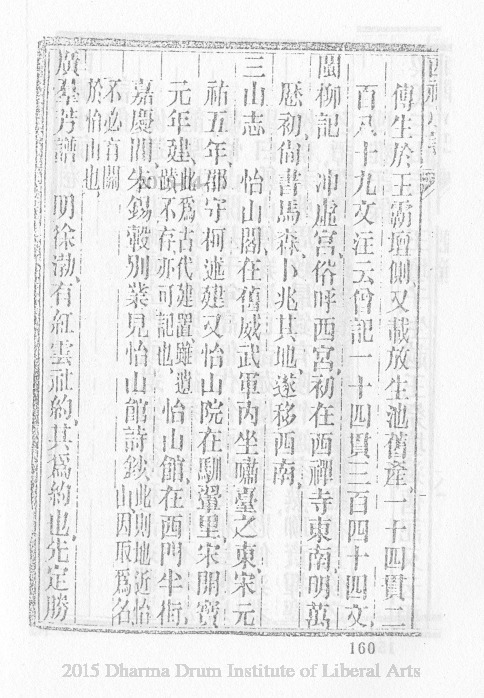 傅生於王霸壇側又載放生池舊產一十四貫二
百八十九文注云曾記一十四貫三百四十四文
閩柳記　冲虛宮俗呼西宮初在西禪寺東南明萬
歷初尚書馬森卜兆其地遂移西南
三山志　怡山閣在舊威武軍內坐嘯臺之東宋元
祐五年郡守柯述建又怡山院在馴翬里宋開寶
元年建此為古代建置雖遺蹟不存亦可記也怡山館在西門半街
嘉慶間朱錫榖別業見怡山館詩鈔此則地近怡山因取為名
不必有關於怡山也
廣羣芳譜　明徐㶿有紅雲社約其為約也先定勝
160
2015 Dharma Drum Institute of Liberal Arts